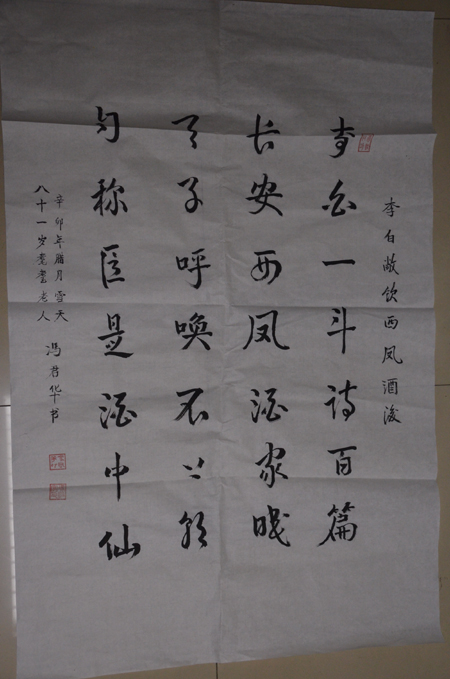 李白敞饮西凤酒後
李白一斗诗百篇
长安西凤酒家眠
天子呼唤不上船
自称臣是酒中仙
辛卯年腊月雪天
八十一岁耄耋老人
冯君华书